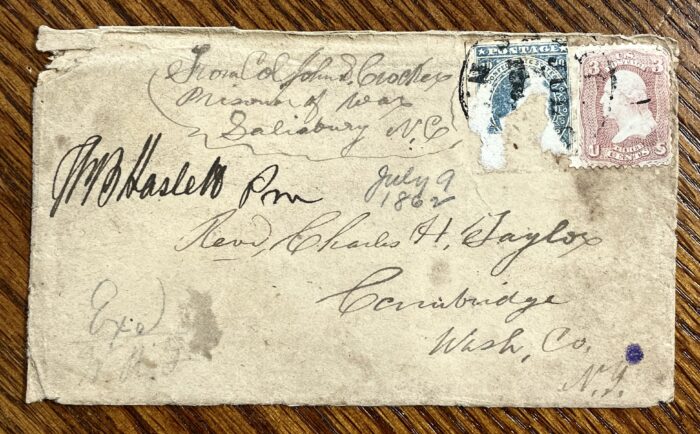 From Col John S. Crocker
Prisoner of War
Salisbury N.C.
POSTAGE
3 3
U CENTS S
Haslett Pm
July 9
1862
Revd, Charles H, Taylor
Cambridge
Wash, Co,
N.Y.
Exd